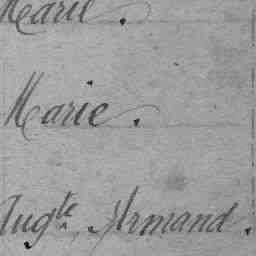 Marie.
Marie.
Augte Armand.